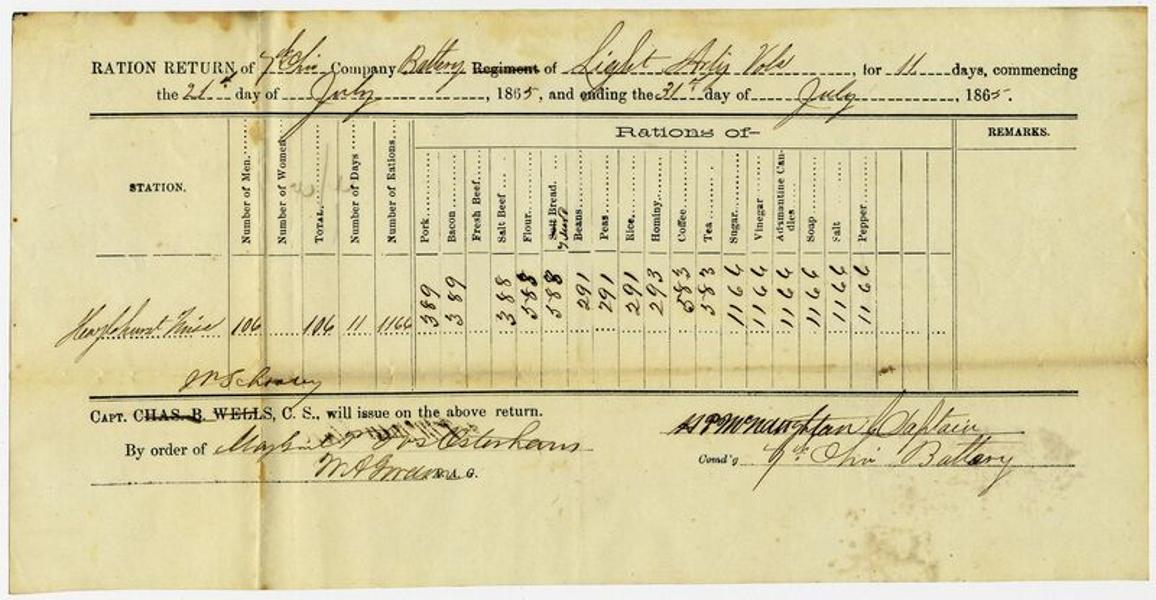 RATION RETURN of 7th Ohio Company Battery Regiment of Light Arty Vols, for 11 days, commencing
the 21st day of July, 1865, and ending the 31st day of July, 1865.
Rations of-
REMARKS.
STATION.
Number of Men.
Number of Women
TOTAL.
Number of Days
Number of Rations.
Pork
Bacon
Fresh Beef.
Salt Beef
Flour.
Bread.
Beans.
Peas
Rice.
Hominy.
Coffee.
Tea
Sugar.
Vinegar
Adamantine Candles
Soap
Salt
Pepper.
106 106 11 1166 389 389 388 583 583 291 291 291 293 583 583 1166 1166 1166 1166 1166 1166
CAPT. CHAS. B. WELLS, C. S., will issue on the above return.
By order of Osterhaus
A. A. G.
McNaughton Captain
Comd'g 7th Ohio Battery